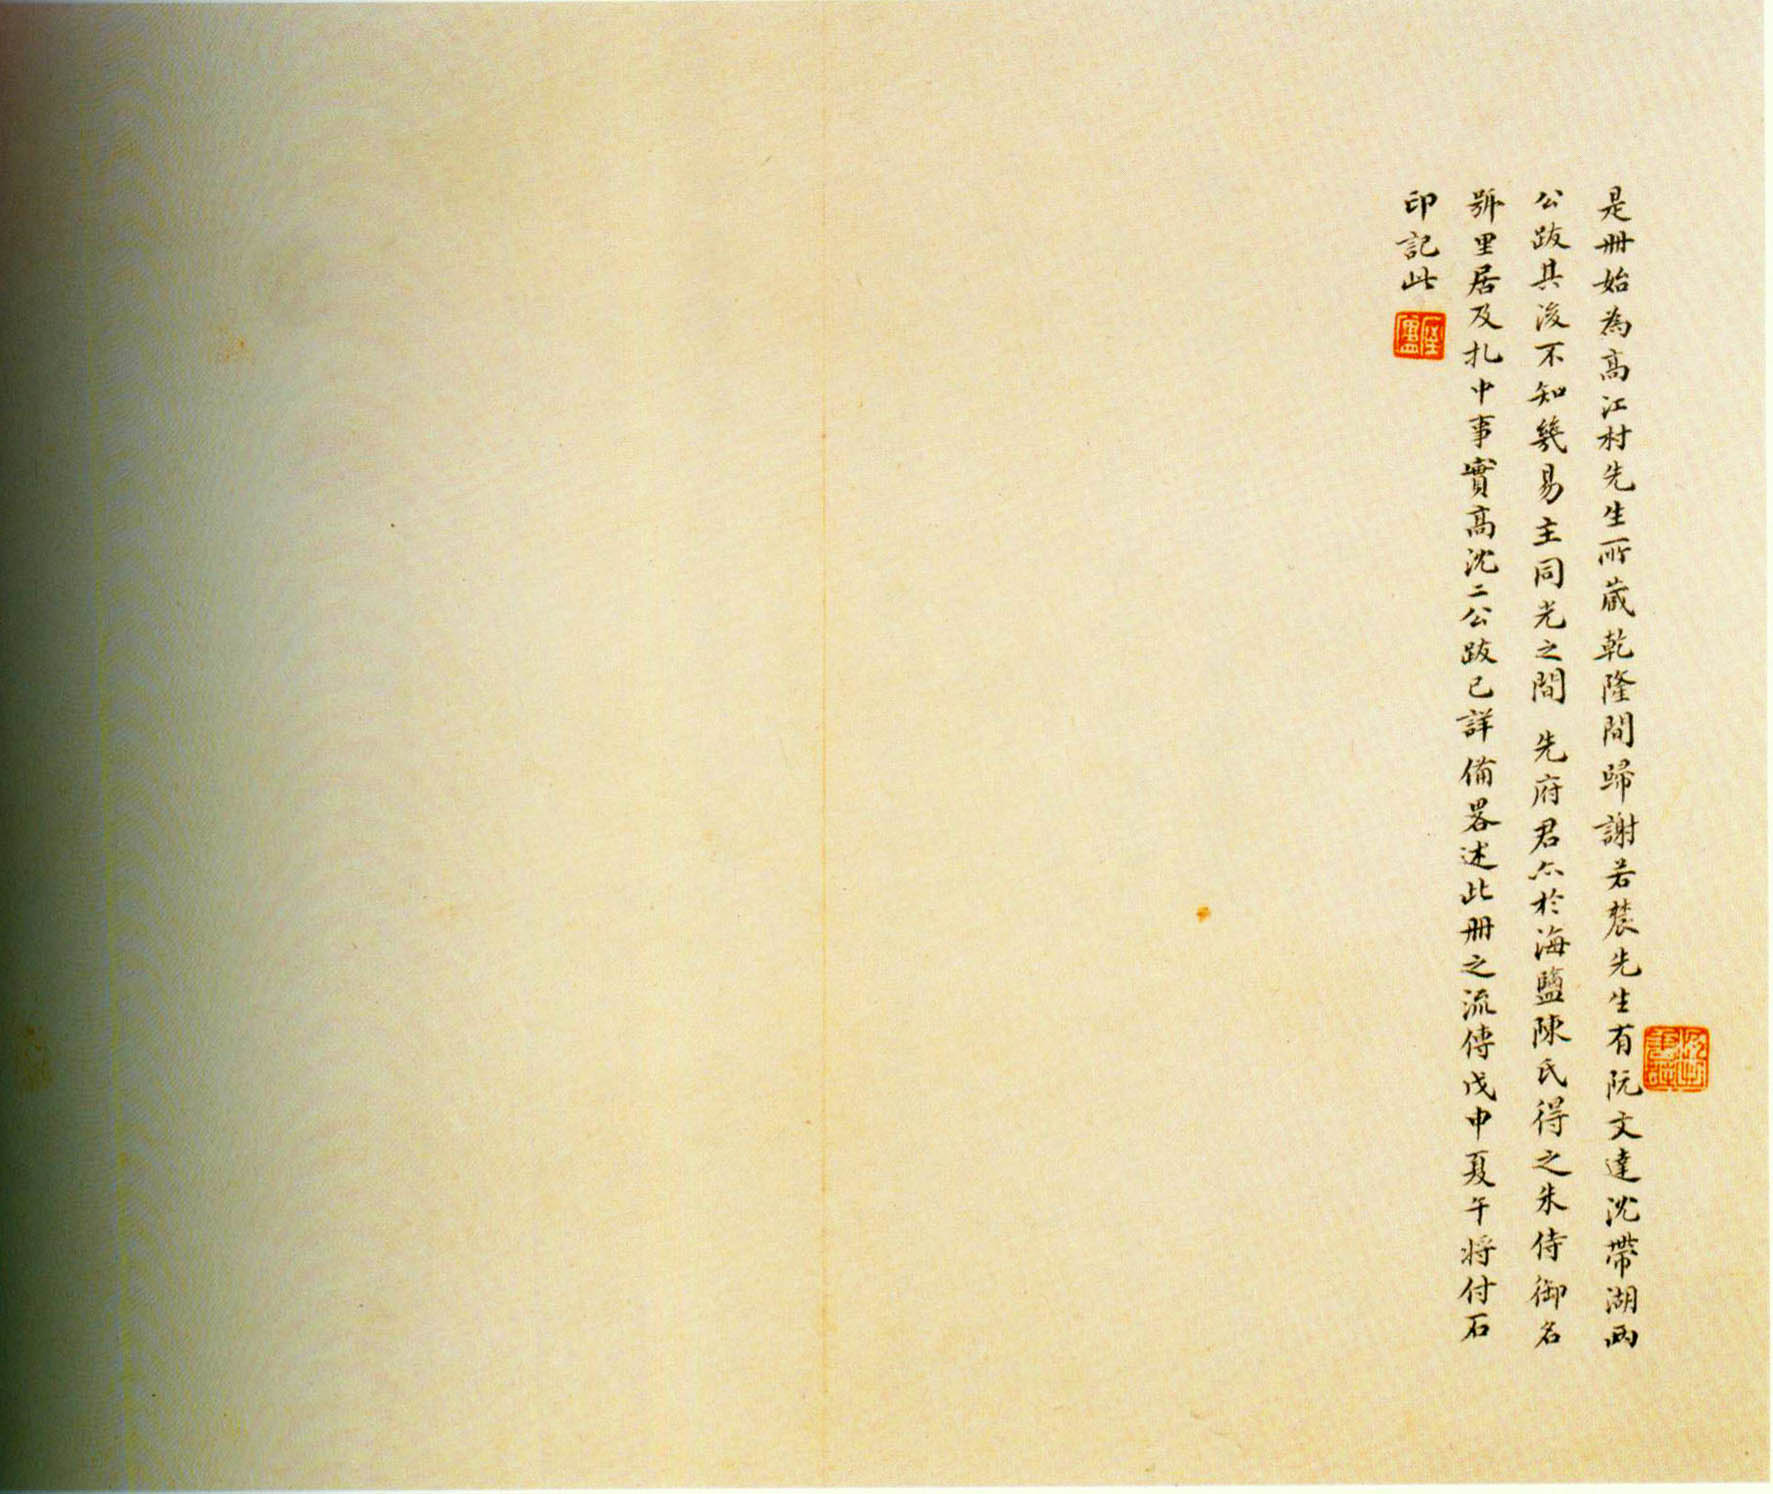 是冊始為高江村先生所蔵乾隆間歸謝若農先生有阮文達沈帶湖兩
公跋其後不知幾易主同光之間 先府君亦於海鹽陳氏得之朱侍御名
號里居及札中事實高沈二公跋已詳備畧述此冊之流傳戊申夏午将付石
印記此